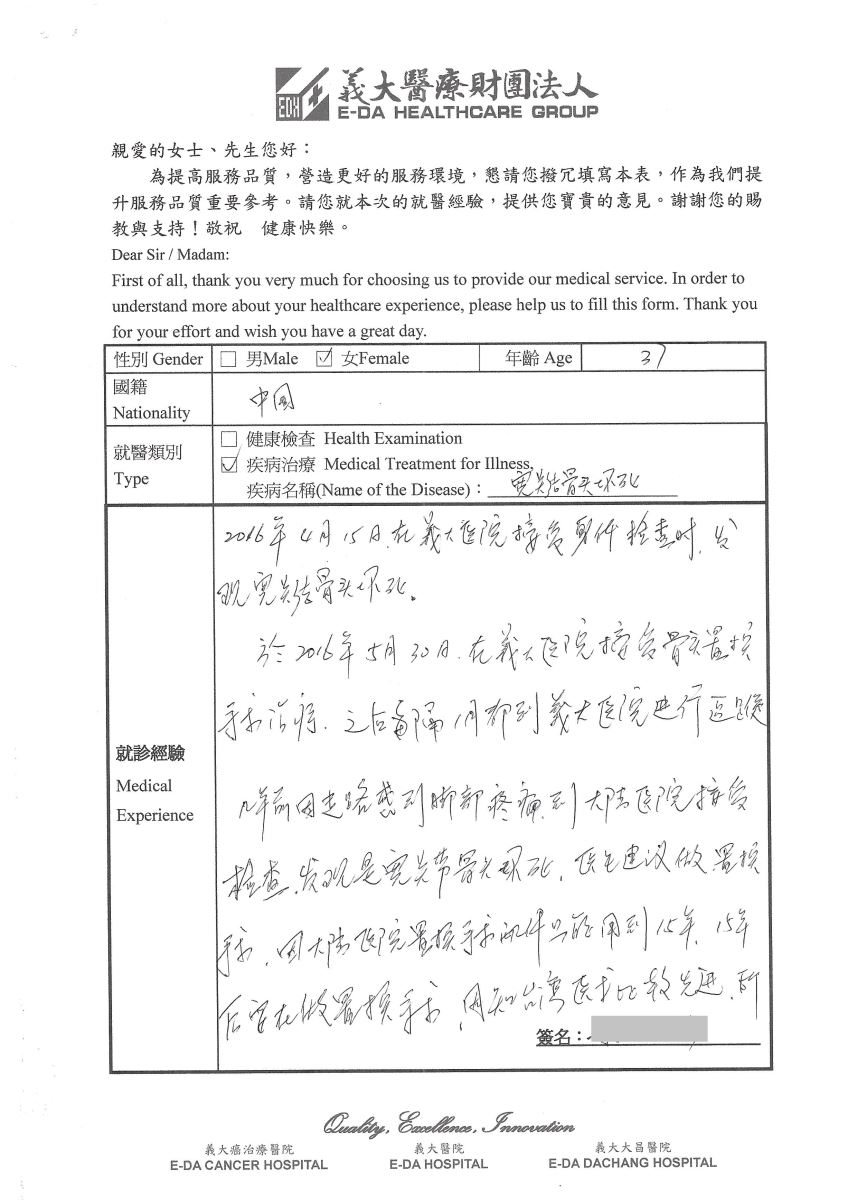 EDH
義大醫療財團法人
E-DA HEALTHCARE GROUP
親愛的女士、先生您好：
為提高服務品質，營造更好的服務環境，懇請您撥冗填寫本表，作為我們提
升服務品質重要參考。請您就本次的就醫經驗，提供您寶貴的意見。謝謝您的賜
教與支持！敬祝 健康快樂。
Dear Sir / Madam:
First of all, thank you very much for choosing us to provide our medical service. In order to
understand more about your healthcare experience, please help us to fill this form. Thank you
for your effort and wish you have a great day.
性別 Gender □ 男Male ☑ 女Female 年齡 Age 37
國籍
Nationality 中国
就醫類別
Type
□ 健康檢查 Health Examination
☑ 疾病治療 Medical Treatment for Illness,
疾病名稱(Name of the Disease)：骨头坏死
就診經驗
Medical
Experience
2016年4月15日.在義大医院接受身体检查时.发
现骨头坏死。
於2016年5月30日.在義大医院接受骨髋置换
手术治疗.之后每隔1月都到義大医院进行追踪
几年前因走路感到脚部疼痛.到大陆医院接受
检查.发现是骨头坏死.医生建议做置换
手术.因大陆医院置换手术配件只能用到15年.15年
后要在做置换手术.因知台湾医术比较先进.所
簽名：
Quality, Excellence, Innovation
義大癌治療醫院 義大醫院 義大大昌醫院
E-DA CANCER HOSPITAL E-DA HOSPITAL E-DA DACHANG HOSPITAL